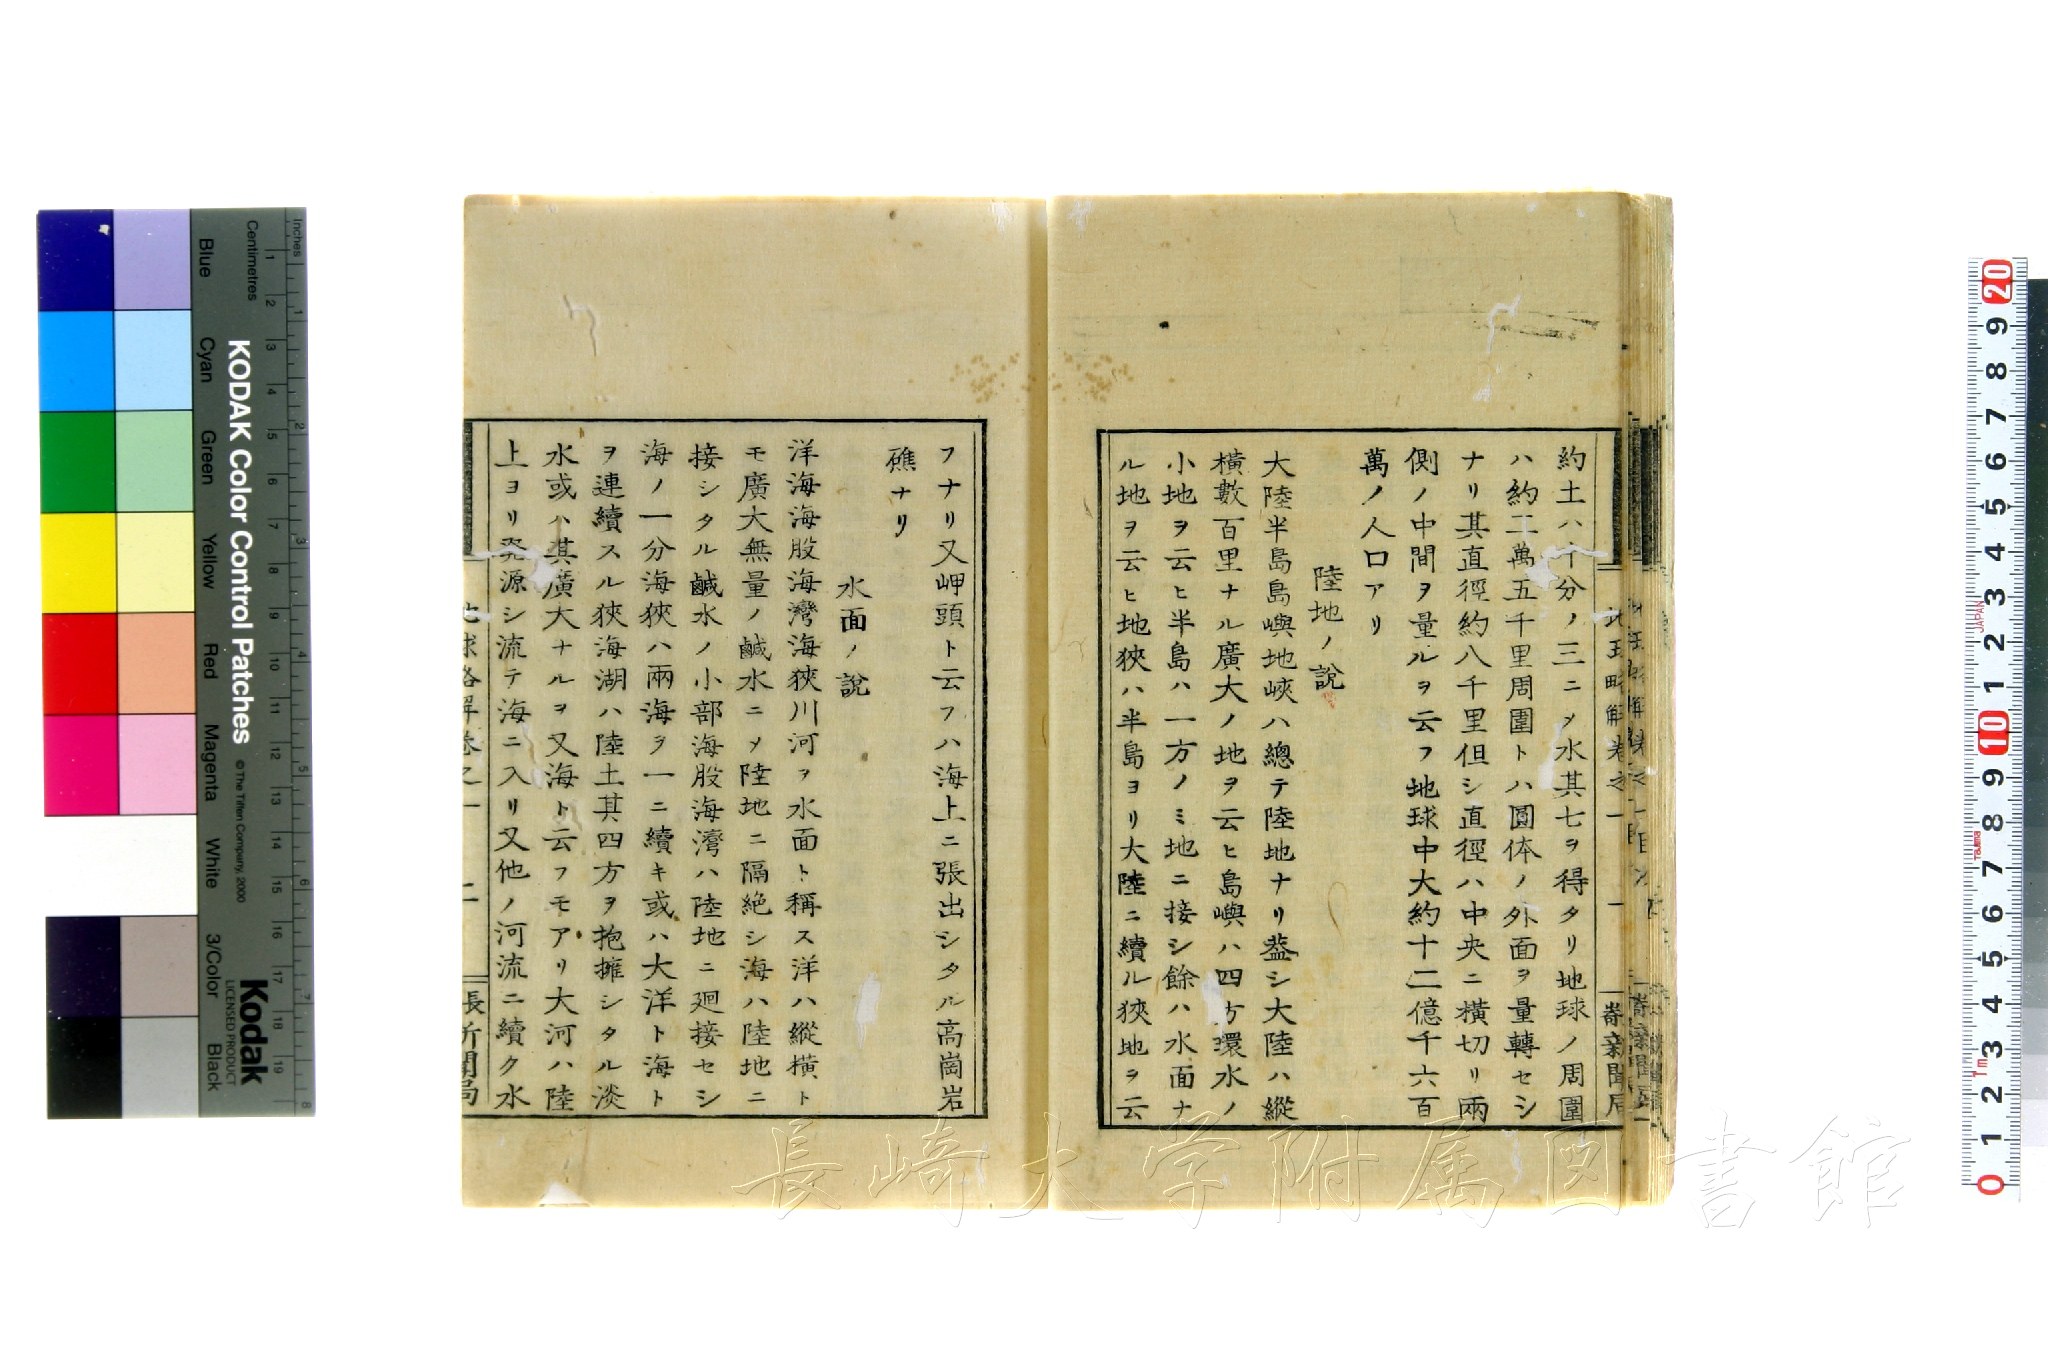 約土ハ十分ノ三ニメ水其七ヲ得タリ地球ノ周圍
ハ約二萬五千里周圍トハ圓体ノ外面ヲ量轉セシ
ナリ其直徑約八千里但シ直徑ハ中央ニ橫切リ兩
側ノ中間ヲ量ルヲ云フ地球中大約十二億千六百
萬ノ人口アリ
陸地ノ說
大陸半島島嶼地峽ハ總テ陸地ナリ葢シ大陸ハ縱
橫數百里ナル廣大ノ地ヲ云ヒ島嶼ハ四方環水ノ
小地ヲ云ヒ半島ハ一方ノミ地ニ接シ餘ハ水面ナ
ル地ヲ云ヒ地狹ハ半島ヨリ大陸ニ續ル狹地ヲ云
フナリ又岬頭ト云フハ海上ニ張出シタル高崗岩
礁ナリ
水面ノ說
洋海海股海灣海狹川河ヲ水面ト稱ス洋ハ縱橫ト
モ廣大無量ノ鹹水ニメ陸地ニ隔絶シ海ハ陸地ニ
接シタル鹹水ノ小部海股海灣ハ陸地ニ廻接セシ
海ノ一分海狹ハ兩海ヲ一ニ續キ或ハ大洋ト海ト
ヲ連續スル狹海湖ハ陸土其四方ヲ抱擁シタル淡
水或ハ其廣大ナルヲ又海ト云フモアリ大河ハ陸
上ヨリ発源シ流テ海ニ入リ又他ノ河流ニ續ク水
地球略解卷之一
二
長崎新聞局
長崎大学附属図書館
KODAK Color Control Patches
© The Tiffen Company, 2000
Kodak
LICENSED PRODUCT
Inches
Centimetres
Blue
Cyan
Green
Yellow
Red
Magenta
White
3/Color
Black
1 2 3 4 5 6 7 8 9 10 11 12 13 14 15 16 17 18 19
1 2 3 4 5 6 7 8
20 9 8 7 6 5 4 3 2 1 10 9 8 7 6 5 4 3 2 1 0
JAPAN
Tajima